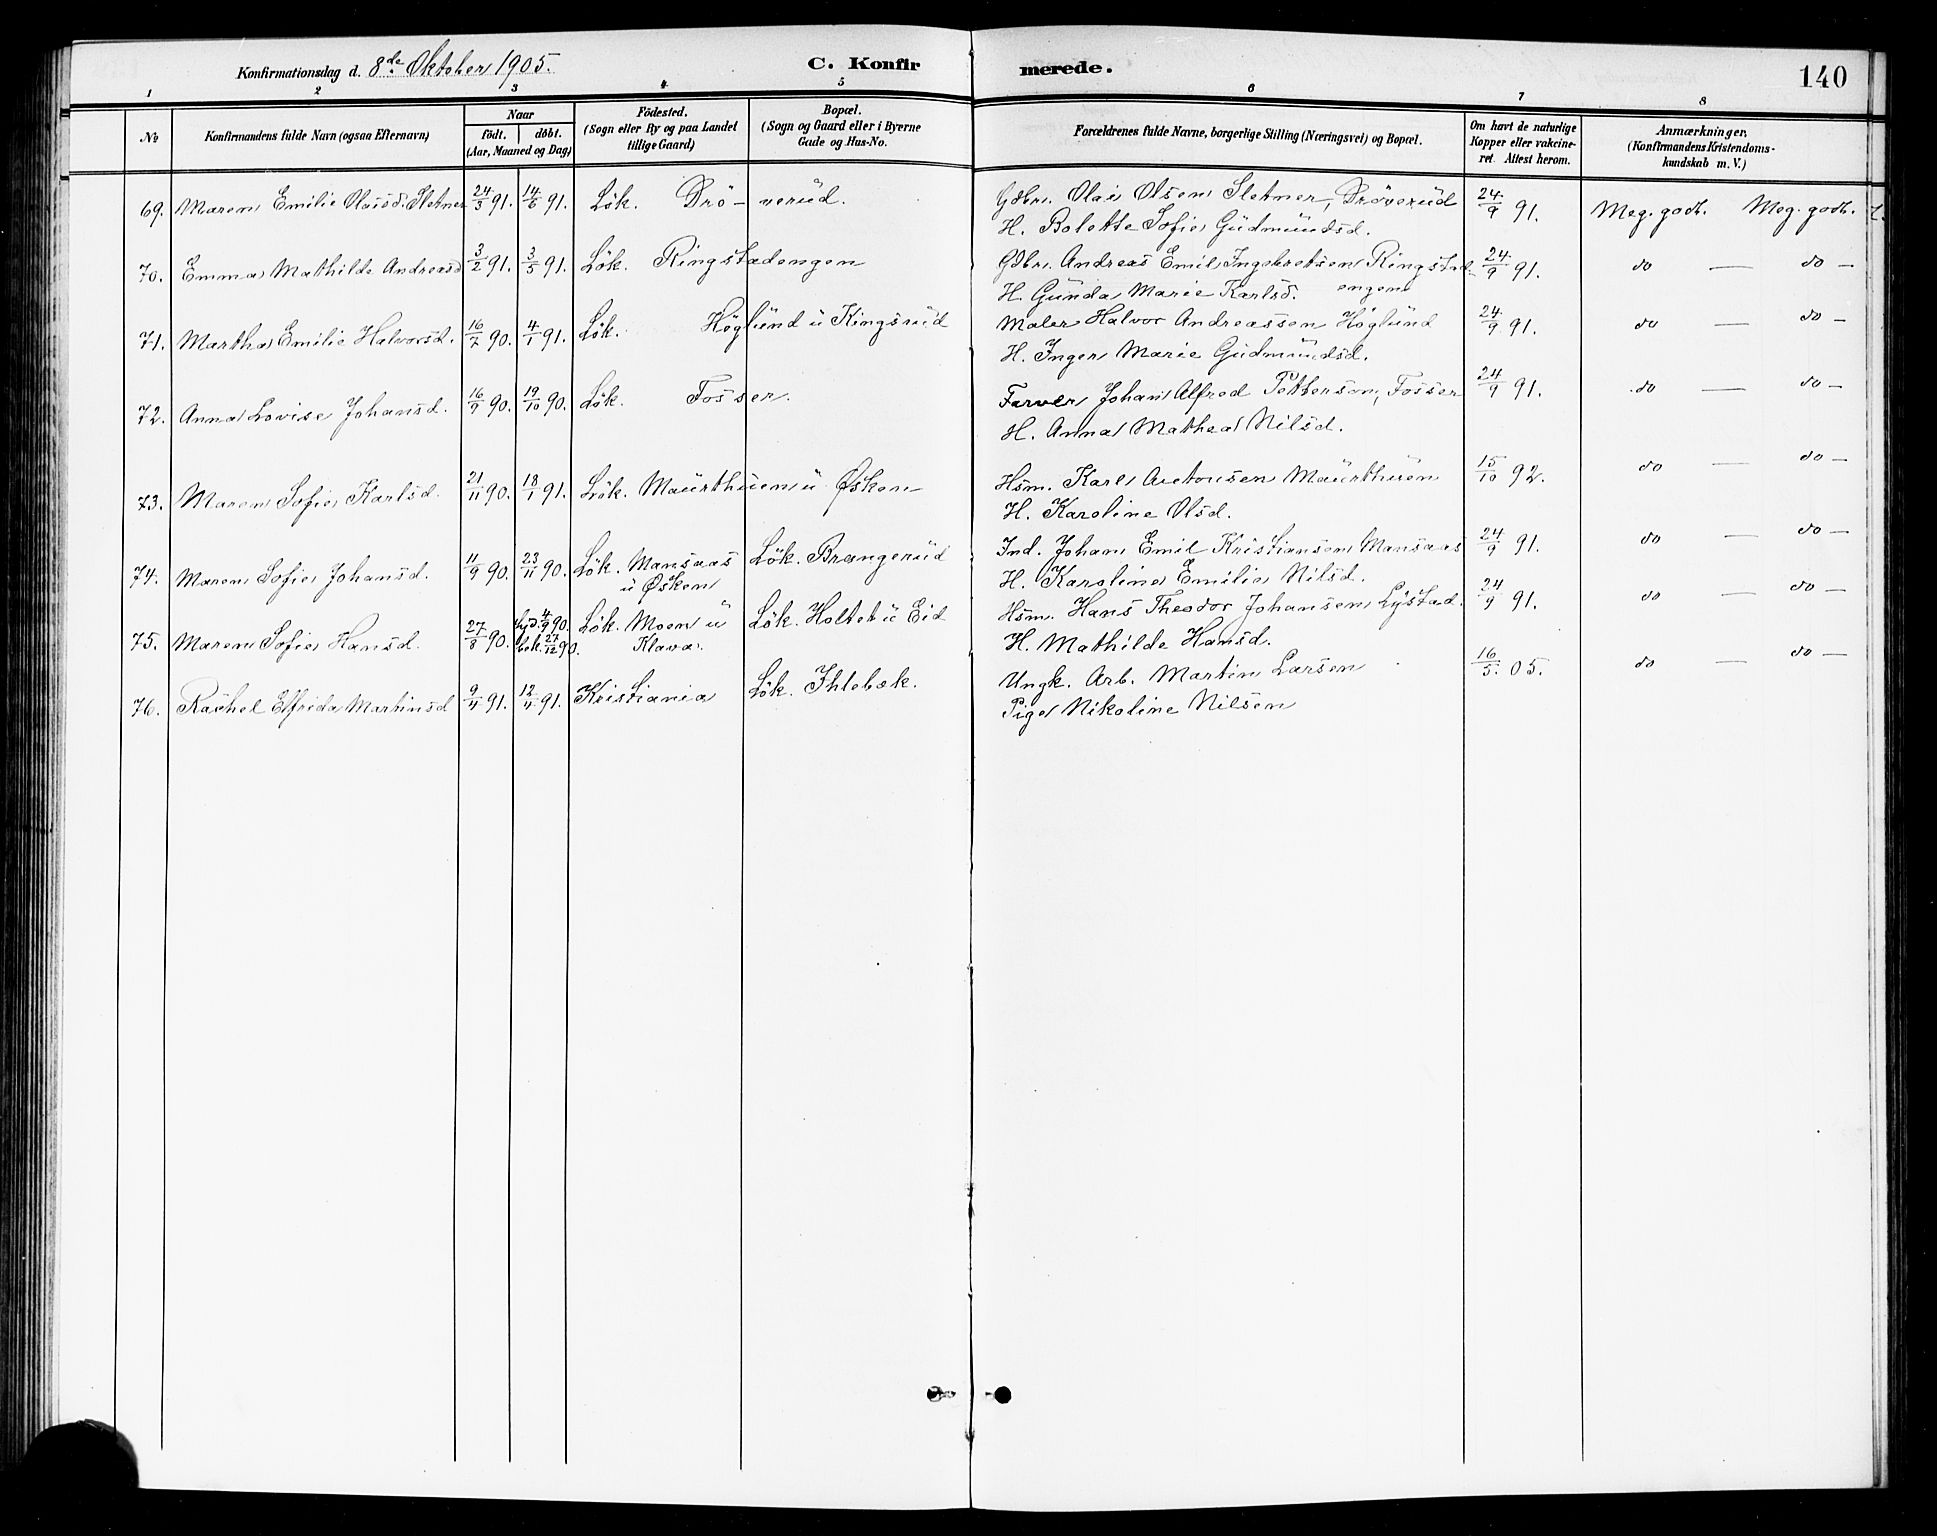 Konfirmationsdag d. 8de Oktober 1905.
C. Konfirmerede.
140
1 2 3 4 5 6 7 8
No
Konfirmandens fulde Navn (ogsaa Efternavn)
Naar
födt. döbt.
(Aar, Maaned og Dag)
Födested.
(Sogn eller By og paa Landet
tillige Gaard)
Bopæl.
(Sogn og Gaard eller i Byerne
Gade og Hus-No.
Forældrenes fulde Navne, borgerlige Stilling (Næringsvei) og Bopæl.
Om havt de naturlige
Kopper eller vakcine-
ret. Attest herom.
Anmærkninger.
(Konfirmandens Kristendoms-
kundskab m. V.)
69. Maren Emilie Olaisd. Sletner 24/3 91. 14/6 91. Løk. Drö-verud. Gdbr. Olai Olsen Sletner, Dröverud 24/9 91. Meg. godt. Meg. godt.
H. Bolette Sofie Gudmundsd.
70. Emma Mathilde Andreasd 3/2 91. 3/5 91. Løk. Ringstadengen Gdbr. Andreas Emil Ingebretsen Ringstad- 24/9 91. do — do —
H. Gunda Marie Karlsd. engen
71. Martha Emilie Halvorsd. 16/7 90. 4/1 91. Løk. Höglund u Kingsrud Maler Halvor Andreassen Höglund 24/9 91. do — do —
H. Inger Marie Gudmundsd.
72. Anna Lovise Johansd. 16/9 90. 19/10 90. Løk. Fosser. Farver Johan Alfred Petterson, Fosser 24/9 91. do — do —
H. Anna Mathea Nilsd.
73. Maren Sofie Karlsd. 21/11 90. 18/1 91. Løk. Maurthuen u Øsken Hsm. Karl Antonsen Maurthuen 15/10 92. do — do —
H. Karoline Olsd.
74. Maren Sofie Johansd. 11/9 90. 23/11 90. Løk. Mansaas u Øsken Løk. Brangerud Ind. Johan Emil Kristiansen Mansaas 24/9 91. do — do —
H. Karoline Emilie Nilsd.
75. Maren Sofie Hansd. 27/8 90. hjd. 4/9 90. bek. 27/12 90. Løk. Moen u Klava. Løk. Holtet u Eid Hsm. Hans Theodor Johansen Lystad. 24/9 91. do — do —
H. Mathilde Hansd.
76. Rachel Elfrida Martinsd 9/4 91. 12/4 91. Kristiania Løk. Ihlebæk. Ungk. Arb. Martin Larsen 16/5. 05. do — do —
Pige Nikoline Nilsen